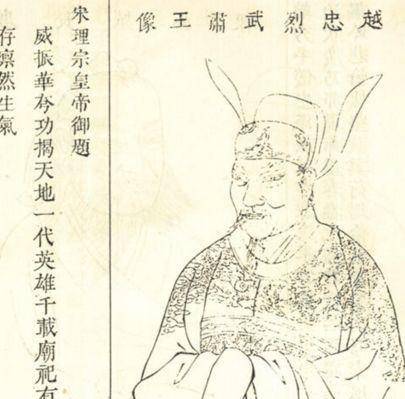 越忠烈武肅王像
宋理宗皇帝御題
威振華夸功揭天地一代英雄千載廟祀有
存凜然生氣